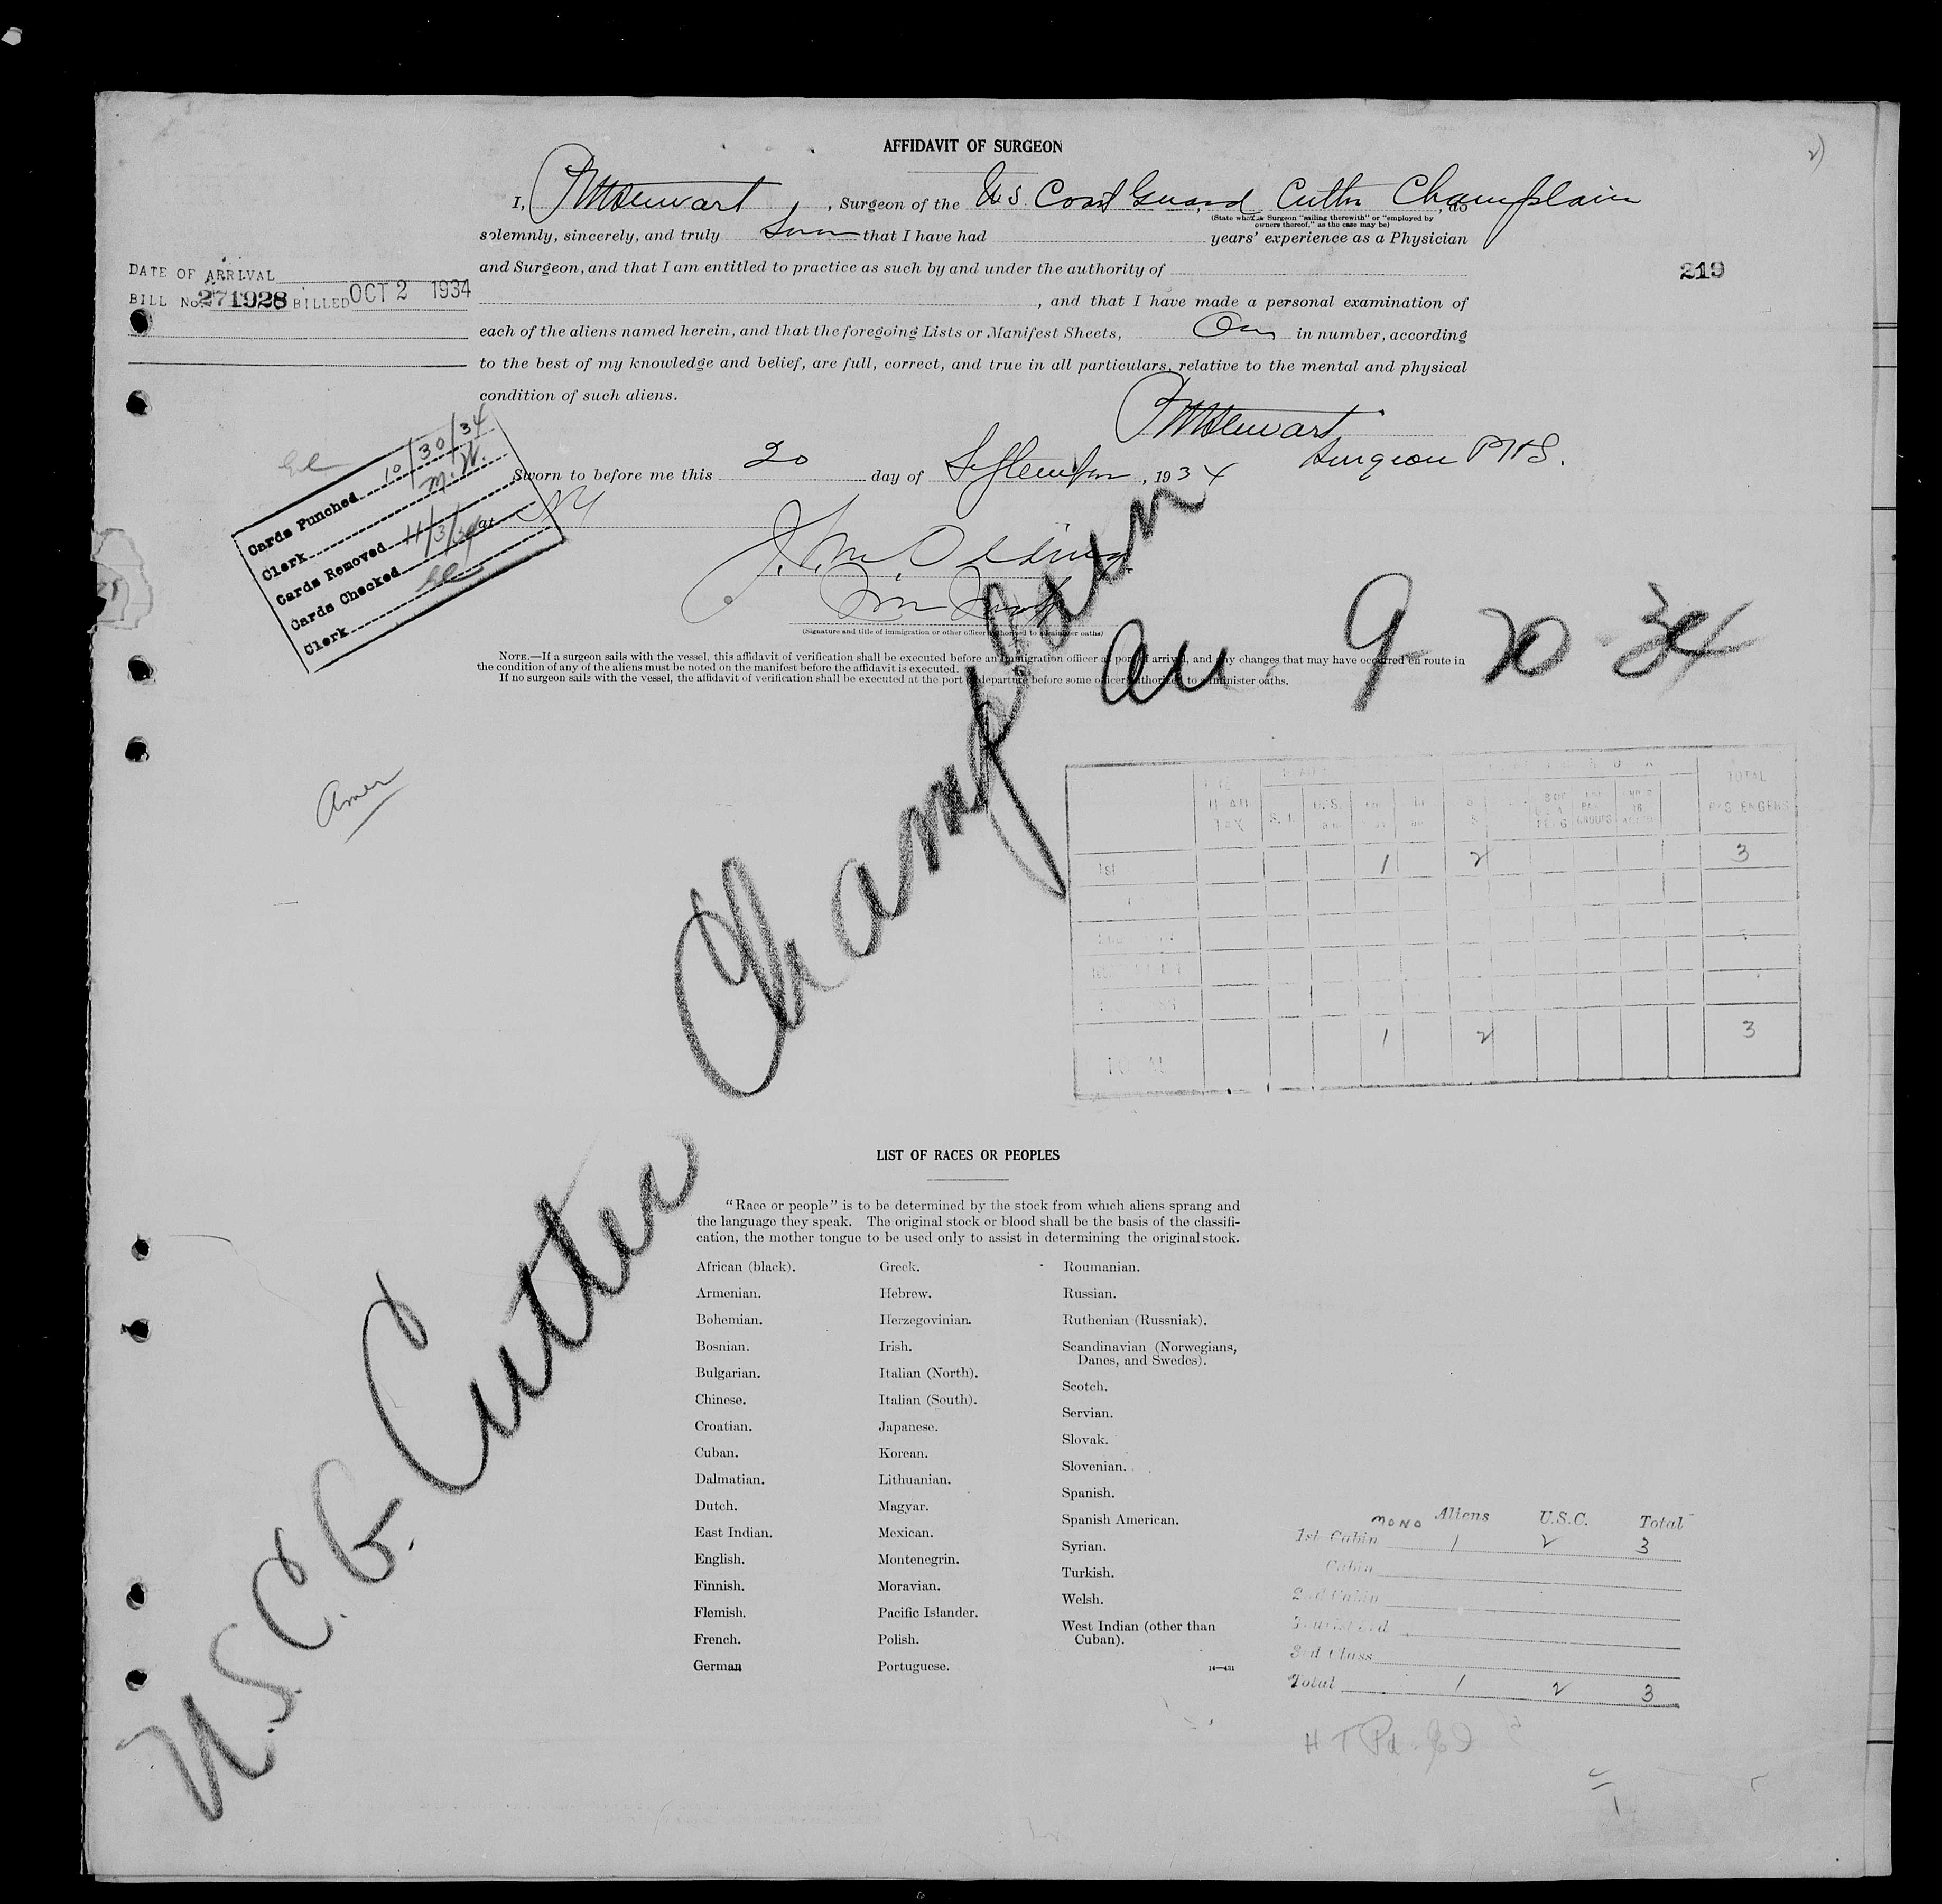 AFFIDAVIT OF SURGEON
I, Stewart, Surgeon of the U.S. Coast Guard Cutter Champlain, do
(State whether Surgeon "sailing therewith" or "employed by
owners thereof," as the case may be)
solemnly, sincerely, and truly that I have had years' experience as a Physician
and Surgeon, and that I am entitled to practice as such by and under the authority of
, and that I have made a personal examination of
each of the aliens named herein, and that the foregoing Lists or Manifest Sheets, One in number, according
to the best of my knowledge and belief, are full, correct, and true in all particulars, relative to the mental and physical
condition of such aliens.
DATE OF ARRIVAL
BILL No. 271928 BILLED OCT 2 1934
219
Stewart
Surgeon PHS.
Sworn to before me this 20 day of September, 1934
at NY
(Signature and title of immigration or other officer authorized to administer oaths)
Cards Punched 10/30/34
Clerk M.W.
Cards Removed 11/3/34
Cards Checked
Clerk
NOTE.—If a surgeon sails with the vessel, this affidavit of verification shall be executed before an immigration officer at port of arrival, and any changes that may have occurred en route in
the condition of any of the aliens must be noted on the manifest before the affidavit is executed.
If no surgeon sails with the vessel, the affidavit of verification shall be executed at the port of departure before some officer authorized to administer oaths.
U.S.C.G. Cutter Champlain
9 20 34
Amer
TOTAL
PASSENGERS
1st 1 2 3
TOTAL 1 2 3
LIST OF RACES OR PEOPLES
"Race or people" is to be determined by the stock from which aliens sprang and
the language they speak. The original stock or blood shall be the basis of the classifi-
cation, the mother tongue to be used only to assist in determining the original stock.
African (black).
Armenian.
Bohemian.
Bosnian.
Bulgarian.
Chinese.
Croatian.
Cuban.
Dalmatian.
Dutch.
East Indian.
English.
Finnish.
Flemish.
French.
German
Greek.
Hebrew.
Herzegovinian.
Irish.
Italian (North).
Italian (South).
Japanese.
Korean.
Lithuanian.
Magyar.
Mexican.
Montenegrin.
Moravian.
Pacific Islander.
Polish.
Portuguese.
Roumanian.
Russian.
Ruthenian (Russniak).
Scandinavian (Norwegians,
Danes, and Swedes).
Scotch.
Servian.
Slovak.
Slovenian.
Spanish.
Spanish American.
Syrian.
Turkish.
Welsh.
West Indian (other than
Cuban).
14—431
MONO Aliens U.S.C. Total
1st Cabin 1 2 3
Cabin
2nd Cabin
Tourist 3rd
3rd Class
Total 1 2 3
H T Pd.